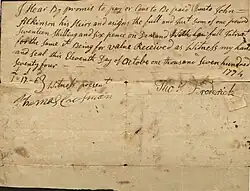 I Hear By promis to pay or Cous to Be paid Unto John
Atkinson his Heir and asigns the full and Just sum of one pound
Seventeen Shilling and six pence on Demand
for the same it Being for value Received as Witness my hand
and seal this Eleventh Day of October one thousand seven hundred
seventy four 1774
£1=17=6 Witness present
Thomas Thos Broderick